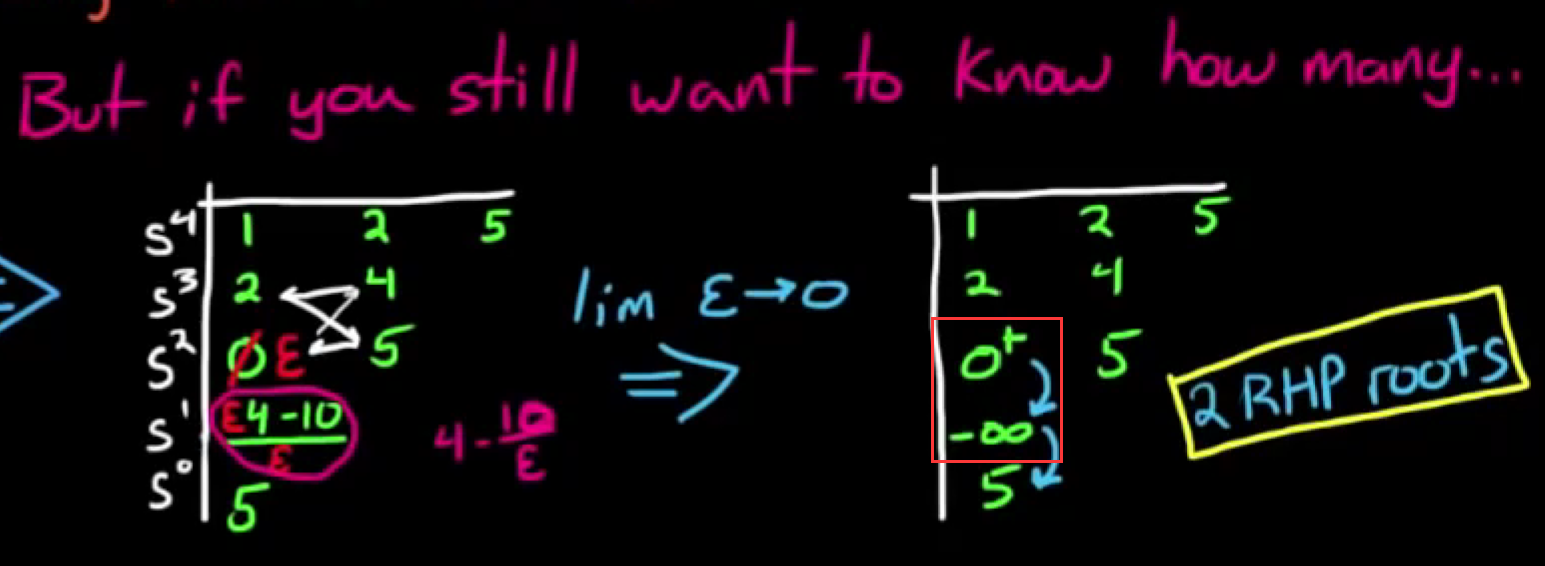 But if you still want to know how many...
s⁴ 1 2 5
s³ 2 4
s² 0 ε 5
s¹ ε4-10/ε
s⁰ 5
4 - 10/ε
lim ε→0
⇒
1 2 5
2 4
0⁺ 5
-∞
5
2 RHP roots